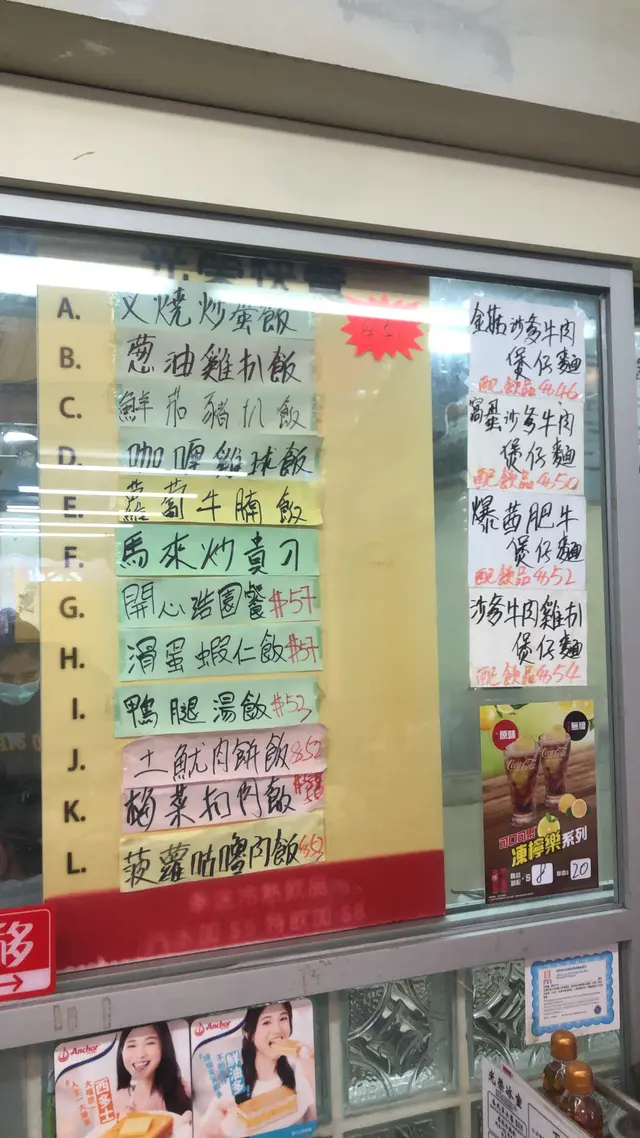 A. 叉燒炒蛋飯
B. 葱油雞扒飯
C. 鮮茄豬扒飯
D. 咖喱雞球飯
E. 蘿蔔牛腩飯
F. 馬來炒貴刁
G. 開心浩園餐 $57
H. 滑蛋蝦仁飯 $57
I. 鴨腿湯飯 $52
J. 土魷肉餅飯 $52
K. 梅菜扣肉飯
L. 菠蘿咕嚕肉飯 $52
金菇沙爹牛肉
煲仔麵
配飲品 $46
窩蛋沙爹牛肉
煲仔麵
配飲品 $50
爆茜肥牛
煲仔麵
配飲品 $52
沙爹牛肉雞扒
煲仔麵
配飲品 $54
原味
無糖
Coca-Cola
可口可樂
凍檸樂系列
$8
20
移
Anchor
西多士
Anchor
鮮油多